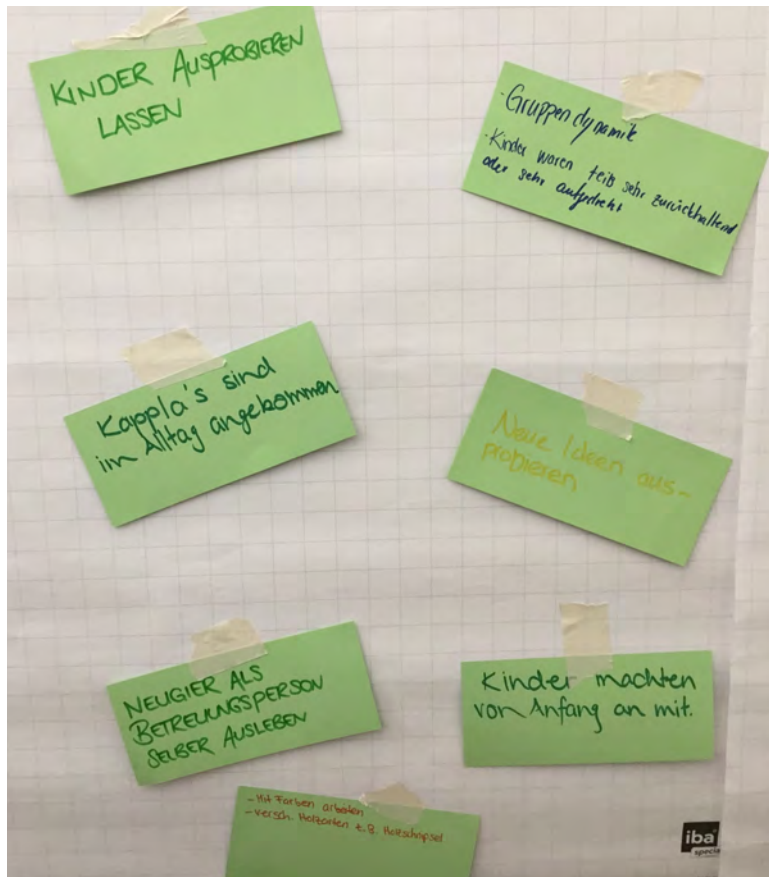 KINDER AUSPROBIEREN
LASSEN
- Gruppendynamik
- Kinder waren teils sehr zurückhaltend
oder sehr aufgedreht
Kappla's sind
im Alltag angekommen
Neue Ideen aus-
probieren
NEUGIER ALS
BETREUUNGSPERSON
SELBER AUSLEBEN
Kinder machten
von Anfang an mit.
- Mit Farben arbeiten
- versch. Holzarten z.B. Holzschnipsel
iba
specia